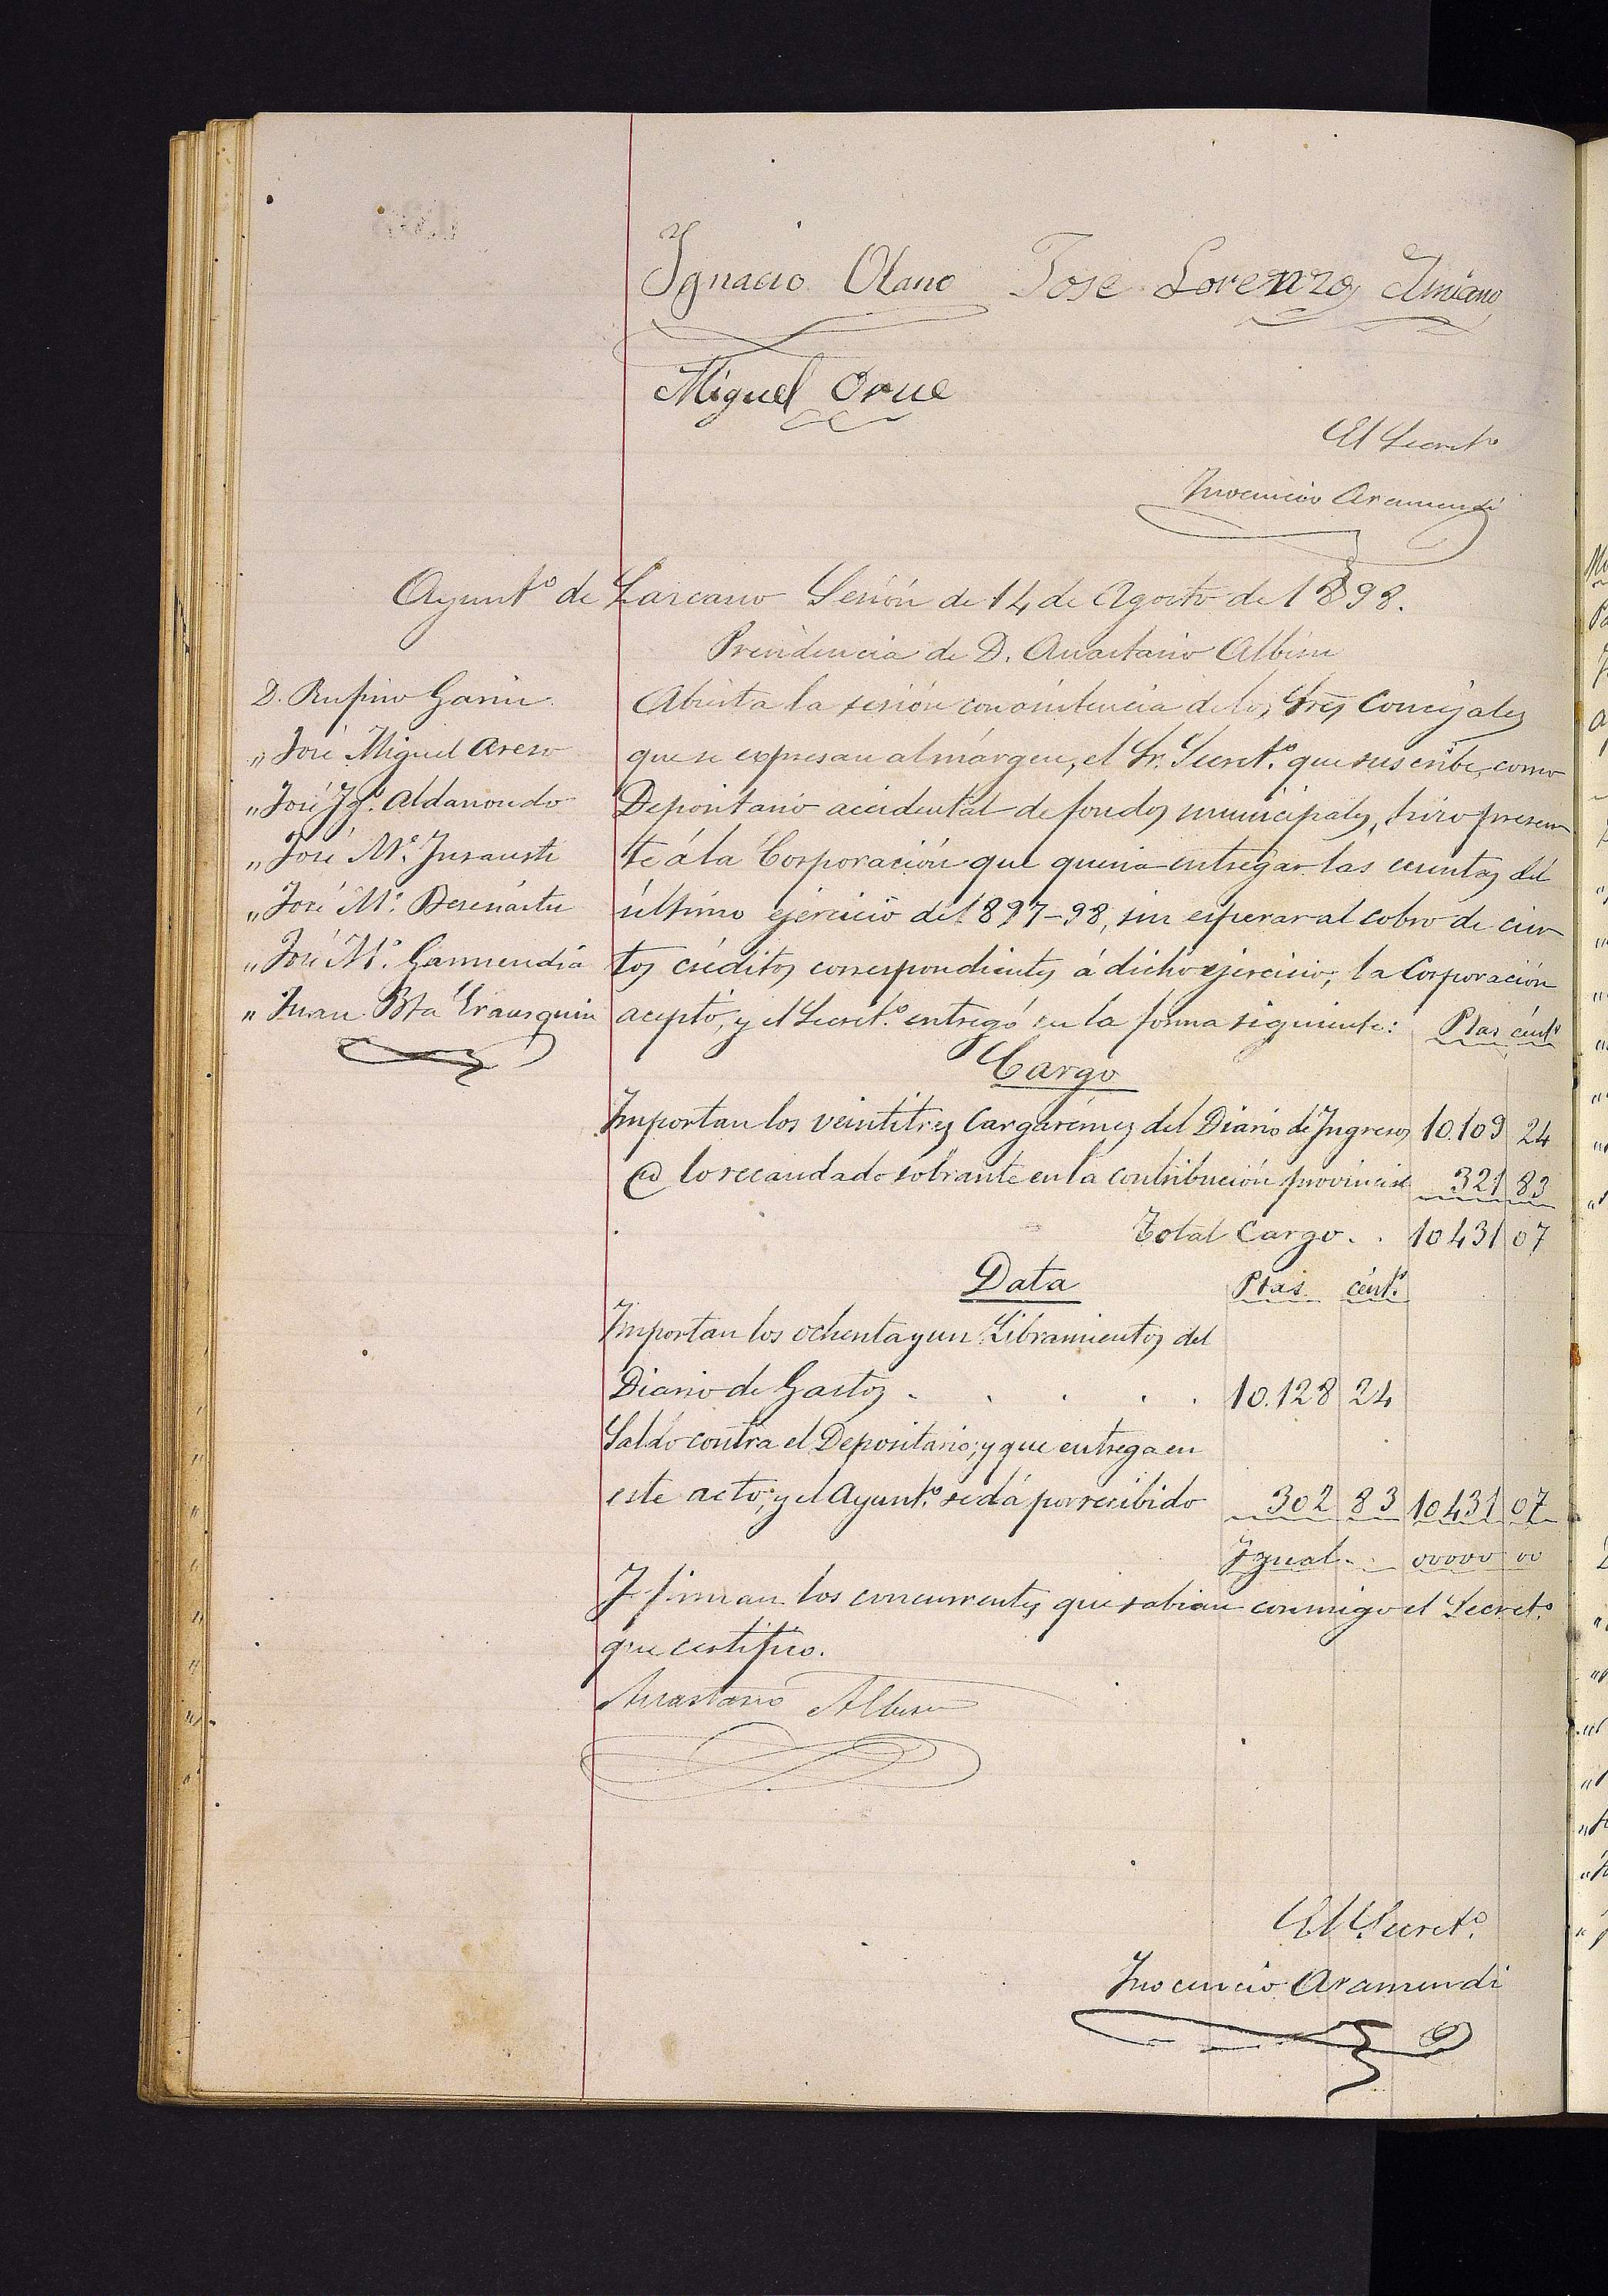 Ignacio Olano Jose Lorenzo Imiano
Miguel Orue
El Secret.º
Inocencio Aramendi
Ayunt.º de Larcano Sesión de 14 de Agosto de 1898.
Presidencia de D. Anastasio Albisu
D. Rufino Garin
" José Miguel Areso
" José Ig.º Aldanondo
" José M.ª Insausti
" José M.ª Beseñartu
" José M.ª Garmendia
" Juan Bta Irausquin
Abierta la sesión con asistencia de los Sres Concejales
que se expresan al márgen, el Sr. Secret.º que suscribe, como
Depositario accidental de fondos municipales, hizo presen
te á la Corporación que queria entregar las cuentas del
último ejercicio de 1897-98, sin esperar al cobro de cier
tos créditos correspondientes á dicho ejercicio; la Corporación
aceptó, y el Secret.º entregó en la forma siguiente: Ptas cént.s
Cargo
Importan los veintitres Cargarémes del Diario de Ingresos 10.109 24
Id lo recaudado sobrante en la contribución provincial 321 83
Total Cargo . . 10431 07
Data Ptas. cént.s
Importan los ochenta y un Libramientos del
Diario de Gastos . . . . . 10.128 24
Saldo contra el Depositario; y que entrega en
este acto; y el Ayunt.º se dá por recibido 302 83 10431 07
Igual . . 00000 00
Y firman los concurrentes que sabian conmigo el Secret.º
que certifico.
Anastasio Albisu
El Secret.º
Inocencio Aramendi